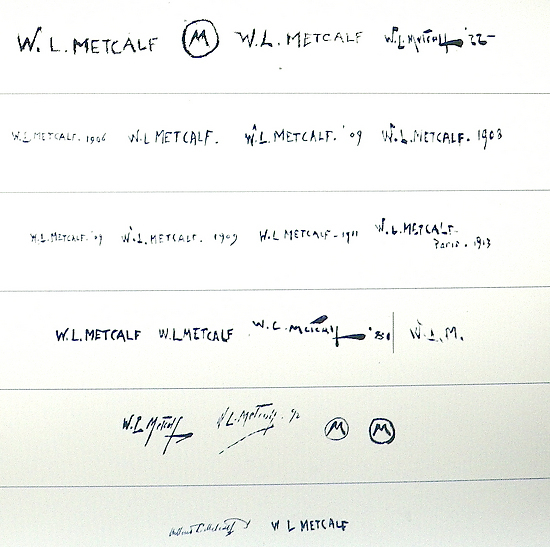 W. L. METCALF M W.L. METCALF W.L. Metcalf '22-
W.L METCALF. 1906 W.L METCALF. W.L. METCALF. '09 W.L. METCALF. 1903
W.L. METCALF. '09 W.L. METCALF. 1909 W.L METCALF-1911 W.L. METCALF-
Paris. 1913
W.L. METCALF W.L METCALF W. L. METCALF '881 W.L.M.
W.L Metcalf W.L. Metcalf. M M
Willard L. Metcalf W L METCALF